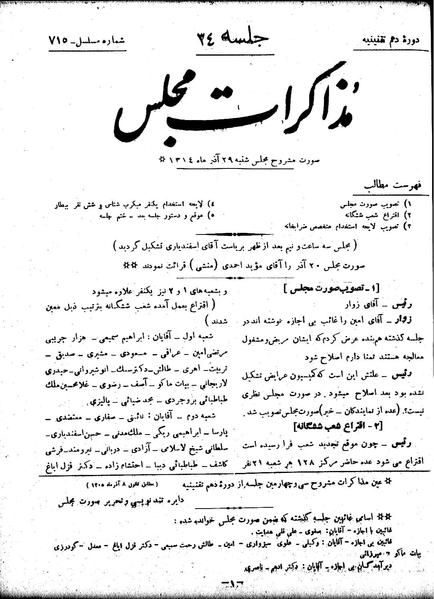 دورهٔ دهم تقنینیه
جلسه ۳۴
شماره مسلسل - ۷۱۵
مذاکرات مجلس
صورت مشروح مجلس شنبه ۲۹ آذر ماه ۱۳۱۴ ※
فهرست مطالب
۱) تصویب صورت مجلس
۲) اقتراع شعب ششگانه
۳) تصویب لایحه استخدام متخصص ضرابخانه
۴) لایحه استخدام یکنفر میکرب شناس و شش نفر بیطار
۵) موقع و دستور جلسه بعد - ختم جلسه
(مجلس سه ساعت و نیم بعد از ظهر بریاست آقای اسفندیاری تشکیل گردید)
صورت مجلس ۲۰ آذر را آقای مؤید احمدی (منشی) قرائت نمودند ※※
[۱- تصویب صورت مجلس]
رئیس - آقای زوار
زوار - آقای امین را غائب بی اجازه نوشته اند در
جلسه گذشته بنده عرض کردم که ایشان مریض و مشغول
معالجه هستند تمنا دارم اصلاح شود
رئیس - علتش این است که کمیسیون عرایض تشکیل
نشده بود بعد اصلاح میشود. در صورت مجلس نظری
نیست؟ (عده از نمایندگان - خیر) صورت مجلس تصویب شد.
[۲- اقتراع شعب ششگانه]
رئیس - چون موقع تجدید شعب فرا رسیده است
اقتراع می شود عده حاضر مرکز ۱۲۸ هر شعبه ۲۱ نفر
و بشعبه‌های ۱ و ۲ نیز یکنفر علاوه میشود
(اقتراع بعمل آمده شعب ششگانه بترتیب ذیل معین
شدند)
شعبه اول - آقایان: ابراهیم سمیعی - هزار جریبی
مرتضی امین - عراقی - مسعودی - مشیری - صدیق -
تربیت - اهری - طالش - دکتر سنک - انوشیروانی - حیدری
لاریجانی - بیات ماکو - آصف - رضوی - غلامحسین ملک
طباطبائی بروجردی - مجد ضیائی - پالیزی.
شعبه دوم - آقایان: نائینی - صفاری - معتضدی -
پارسا - ابراهیمی ریگی - ملک مدنی - حسن اسفندیاری -
سلطانی شیخ الاسلامی - آزادی - دربانی - نیرومند - فرشی
کاشف - طباطبائی دیبا - احتشام زاده - دکتر قزل ایاغ
※ عین مذاکرات مشروح سی و چهارمین جلسه از دورهٔ دهم تقنینیه (مطابق قانون ۸ آذر ماه ۱۳۰۵)
دایره تند نویسی و تحریر صورت مجلس
※※ اسامی غائبین جلسه گذشته که ضمن صورت مجلس خوانده شده:
غائبین با اجازه - آقایان: صفوی - علی قلی هدایت.
غائبین بی اجازه - آقایان: وکیلی - علوی سبزواری - امین - طالش - رحمت سمیعی - دکتر قزل ایاغ - معدل - گودرزی
بیات ماکو
دیر آمدگان بی اجازه - آقایان: دکتر ادهم - ناصری
-۱-